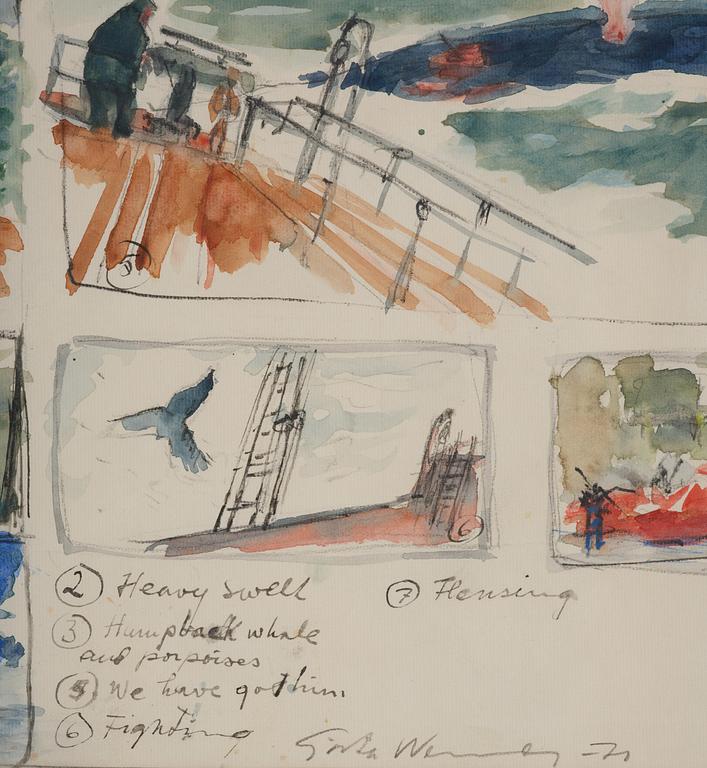 5
6
② Heavy swell
③ Humpback whale
and porpoises
⑤ We have got him
⑥ Fighting
⑦ Flensing
Gösta Werner -71